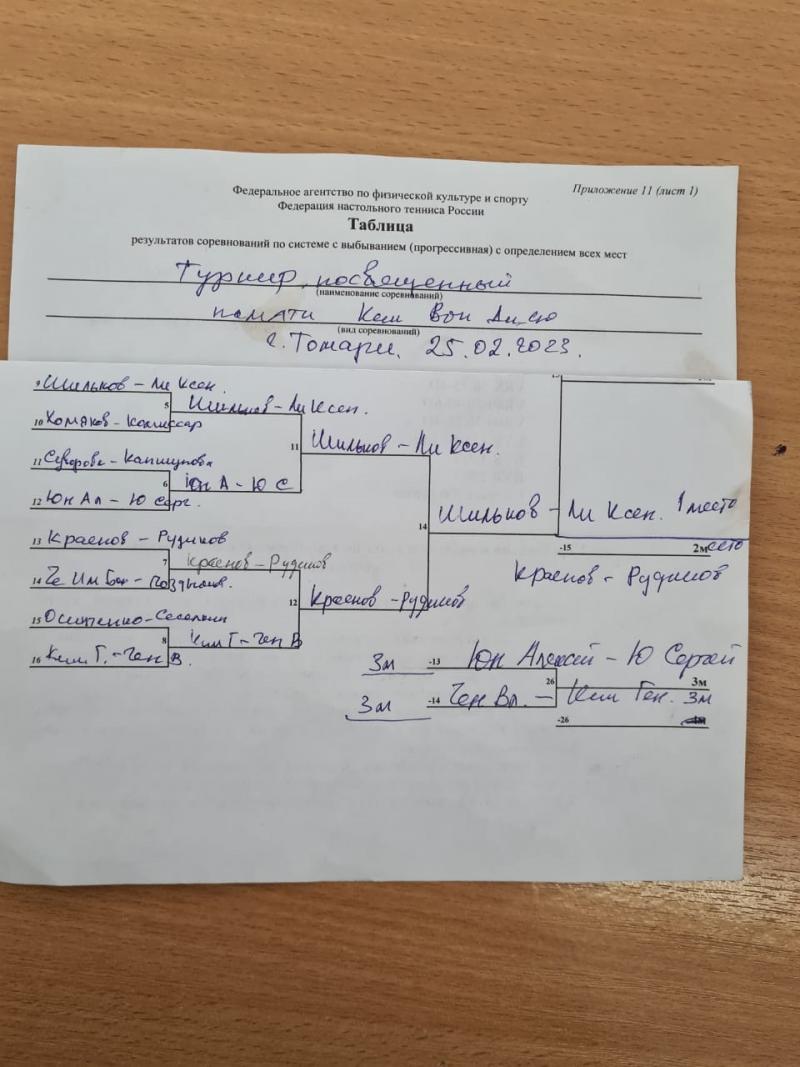 Приложение 11 (лист 1)
Федеральное агентство по физической культуре и спорту
Федерация настольного тенниса России
Таблица
результатов соревнований по системе с выбыванием (прогрессивная) с определением всех мест
Турнир, посвещенный
(наименование соревнований)
памяти Ким Вон
(вид соревнований)
г. Томари. 25.02.2023.
9 Шильков - Ли Ксен.
5 Шильков - Ли Ксен.
10 Хомяков - Комиссар
11 Шильков - Ли Ксен.
11 Суворова - Капшукова
6 Юн А - Ю С
12 Юн Ал - Ю Серг.
14 Шильков - Ли Ксен. 1 место
13 Краснов - Рудиков
7 Краснов - Рудиков
14 Че Им Бок -
12 Краснов - Рудиков
15 Осипенко -
8 Ким Г - Чен В
16 Ким Г. - Чен В.
-15 2место
Краснов - Рудиков
3м -13 Юн Алексей - Ю Сергей
26 3м
3м -14 Чен Вл. - Ким Ген. 3м
-26